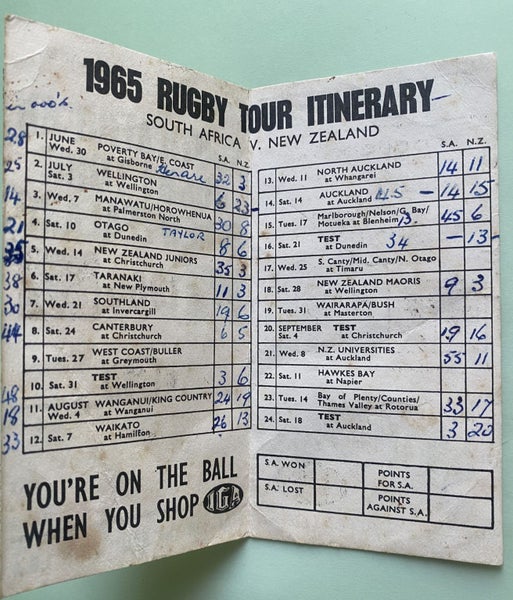 1965 RUGBY TOUR ITINERARY
SOUTH AFRICA V. NEW ZEALAND
in 000's
S.A. N.Z.
28 1. JUNE Wed. 30 POVERTY BAY/E. COAST at Gisborne 32 3
25 2. JULY Sat. 3 WELLINGTON at Wellington 6 23
14 3. Wed. 7 MANAWATU/HOROWHENUA at Palmerston North 30 8
21 4. Sat. 10 OTAGO at Dunedin TAYLOR 8 6
35 5. Wed. 14 NEW ZEALAND JUNIORS at Christchurch 35 3
38 6. Sat. 17 TARANAKI at New Plymouth 11 3
30 7. Wed. 21 SOUTHLAND at Invercargill 19 6
44 8. Sat. 24 CANTERBURY at Christchurch 6 5
9. Tues. 27 WEST COAST/BULLER at Greymouth
10. Sat. 31 TEST at Wellington 3 6
48 11. AUGUST Wed. 4 WANGANUI/KING COUNTRY at Wanganui 24 19
18
33 12. Sat. 7 WAIKATO at Hamilton 26 13
YOU'RE ON THE BALL
WHEN YOU SHOP IGA
S.A. N.Z.
13. Wed. 11 NORTH AUCKLAND at Whangarei 14 11
14. Sat. 14 AUCKLAND at Auckland 45 - 14 15
15. Tues. 17 Marlborough/Nelson/G. Bay/ Motueka at Blenheim 13 45 6
16. Sat. 21 TEST at Dunedin 34 - 13 -
17. Wed. 25 S. Canty/Mid. Canty/N. Otago at Timaru
18. Sat. 28 NEW ZEALAND MAORIS at Wellington 9 3
19. Tues. 31 WAIRARAPA/BUSH at Masterton
20. SEPTEMBER Sat. 4 TEST at Christchurch 19 16
21. Wed. 8 N.Z. UNIVERSITIES at Auckland 55 11
22. Sat. 11 HAWKES BAY at Napier
23. Tues. 14 Bay of Plenty/Counties/ Thames Valley at Rotorua 33 17
24. Sat. 18 TEST at Auckland 3 20
S.A. WON POINTS FOR S.A.
S.A. LOST POINTS AGAINST S.A.